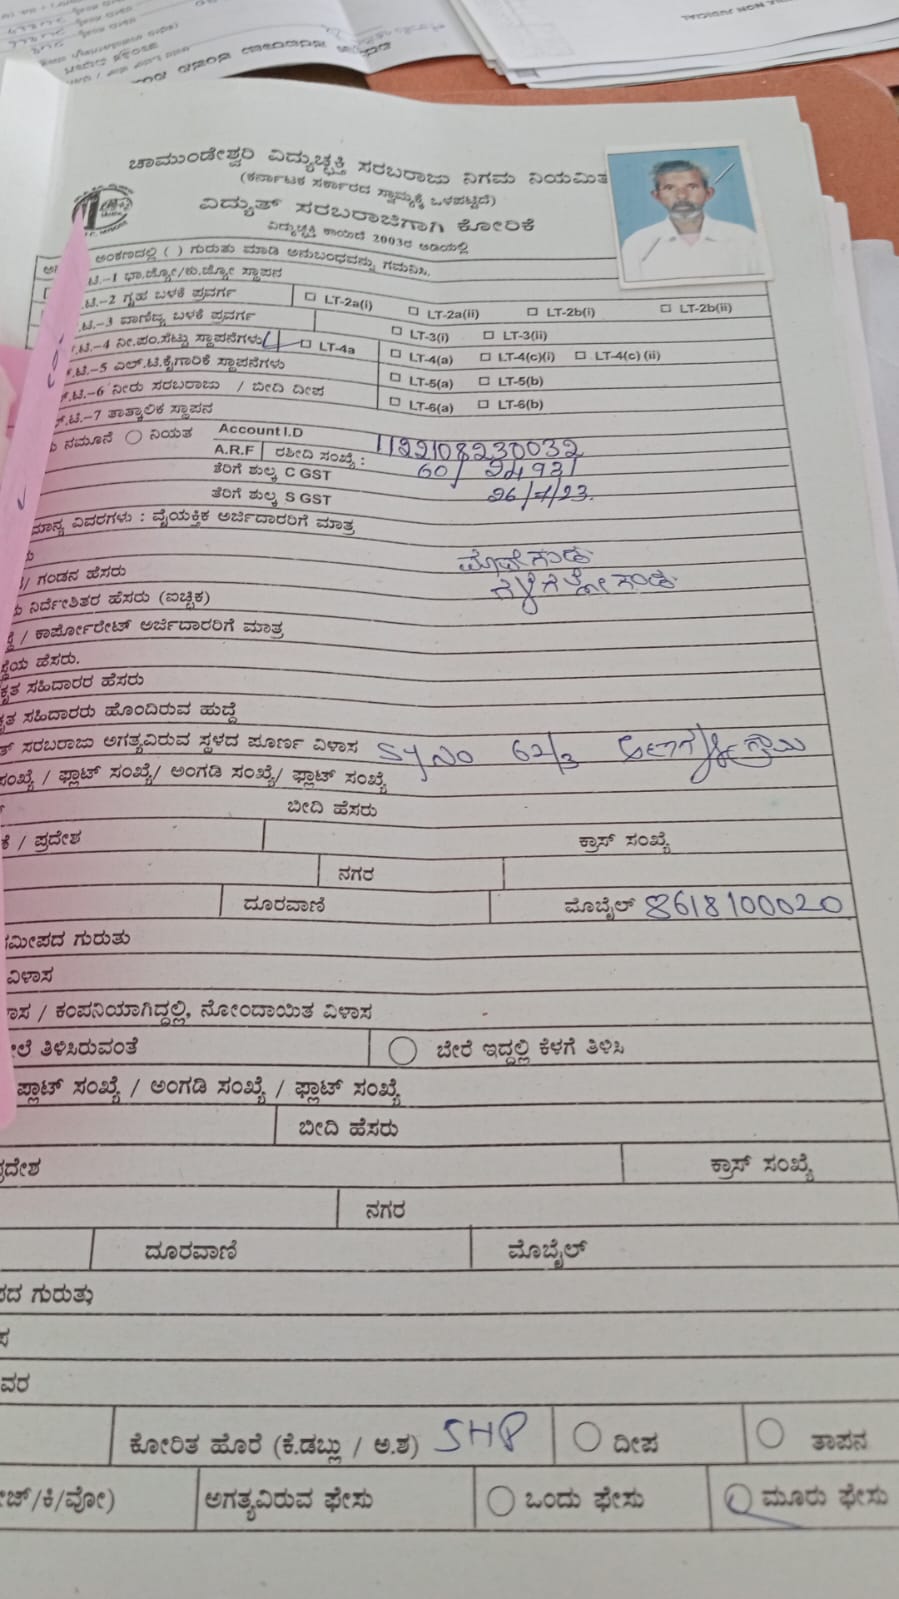 ಚಾಮುಂಡೇಶ್ವರಿ ವಿದ್ಯುಚ್ಛಕ್ತಿ ಸರಬರಾಜು ನಿಗಮ ನಿಯಮಿತ
(ಕರ್ನಾಟಕ ಸರ್ಕಾರದ ಸ್ವಾಮ್ಯಕ್ಕೆ ಒಳಪಟ್ಟಿದೆ)
ವಿದ್ಯುತ್ ಸರಬರಾಜಿಗಾಗಿ ಕೋರಿಕೆ
ವಿದ್ಯುಚ್ಛಕ್ತಿ ಕಾಯಿದೆ 2003ರ ಅಡಿಯಲ್ಲಿ
ಅಂಕಣದಲ್ಲಿ ( ) ಗುರುತು ಮಾಡಿ ಅನುಬಂಧವನ್ನು ಗಮನಿಸಿ.
.ಟಿ.-1 ಭಾ.ಜ್ಯೋ/ಕು.ಜ್ಯೋ ಸ್ಥಾಪನ
.ಟಿ.-2 ಗೃಹ ಬಳಕೆ ಪ್ರವರ್ಗ LT-2a(i) LT-2a(ii) LT-2b(i) LT-2b(ii)
.ಟಿ.-3 ವಾಣಿಜ್ಯ ಬಳಕೆ ಪ್ರವರ್ಗ LT-3(i) LT-3(ii)
.ಟಿ.-4 ನೀ.ಪಂ.ಸೆಟ್ಟು ಸ್ಥಾಪನೆಗಳು LT-4a LT-4(a) LT-4(c)(i) LT-4(c) (ii)
.ಟಿ.-5 ಎಲ್.ಟಿ.ಕೈಗಾರಿಕೆ ಸ್ಥಾಪನೆಗಳು LT-5(a) LT-5(b)
.ಟಿ.-6 ನೀರು ಸರಬರಾಜು / ಬೀದಿ ದೀಪ LT-6(a) LT-6(b)
.ಟಿ.-7 ತಾತ್ಕಾಲಿಕ ಸ್ಥಾಪನ
ನಮೂನೆ ನಿಯತ Account I.D 1122108230032
A.R.F ರಶೀದಿ ಸಂಖ್ಯೆ : 60/ 24931
ತೆರಿಗೆ ಶುಲ್ಕ C GST
ತೆರಿಗೆ ಶುಲ್ಕ S GST 26/7/23.
ಮಾನ್ಯ ವಿವರಗಳು : ವೈಯಕ್ತಿಕ ಅರ್ಜಿದಾರರಿಗೆ ಮಾತ್ರ
/ ಗಂಡನ ಹೆಸರು
ನಿರ್ದೇಶಿತರ ಹೆಸರು (ಐಚ್ಛಿಕ)
/ ಕಾರ್ಪೋರೇಟ್ ಅರ್ಜಿದಾರರಿಗೆ ಮಾತ್ರ
ಸ್ಥೆಯ ಹೆಸರು.
ಕೃತ ಸಹಿದಾರರ ಹೆಸರು
ಕೃತ ಸಹಿದಾರರು ಹೊಂದಿರುವ ಹುದ್ದೆ
ತ್ ಸರಬರಾಜು ಅಗತ್ಯವಿರುವ ಸ್ಥಳದ ಪೂರ್ಣ ವಿಳಾಸ SY ನಂ 62/3
ಸಂಖ್ಯೆ / ಫ್ಲಾಟ್ ಸಂಖ್ಯೆ/ ಅಂಗಡಿ ಸಂಖ್ಯೆ/ ಫ್ಲಾಟ್ ಸಂಖ್ಯೆ
ಬೀದಿ ಹೆಸರು
ಕೆ / ಪ್ರದೇಶ ಕ್ರಾಸ್ ಸಂಖ್ಯೆ
ನಗರ
ದೂರವಾಣಿ ಮೊಬೈಲ್ 8618100020
ಸಮೀಪದ ಗುರುತು
ವಿಳಾಸ
ಾಸ / ಕಂಪನಿಯಾಗಿದ್ದಲ್ಲಿ, ನೋಂದಾಯಿತ ವಿಳಾಸ
ೇಲೆ ತಿಳಿಸಿರುವಂತೆ ಬೇರೆ ಇದ್ದಲ್ಲಿ ಕೆಳಗೆ ತಿಳಿಸಿ
ಪ್ಲಾಟ್ ಸಂಖ್ಯೆ / ಅಂಗಡಿ ಸಂಖ್ಯೆ / ಫ್ಲಾಟ್ ಸಂಖ್ಯೆ
ಬೀದಿ ಹೆಸರು
ಪ್ರದೇಶ ಕ್ರಾಸ್ ಸಂಖ್ಯೆ
ನಗರ
ದೂರವಾಣಿ ಮೊಬೈಲ್
ಪದ ಗುರುತು
ವರ
ಕೋರಿತ ಹೊರೆ (ಕೆ.ಡಬ್ಲು / ಅ.ಶ) 5HP ದೀಪ ತಾಪನ
ೇಜ್/ಕಿ/ವೋ) ಅಗತ್ಯವಿರುವ ಫೇಸು ಒಂದು ಫೇಸು ಮೂರು ಫೇಸು